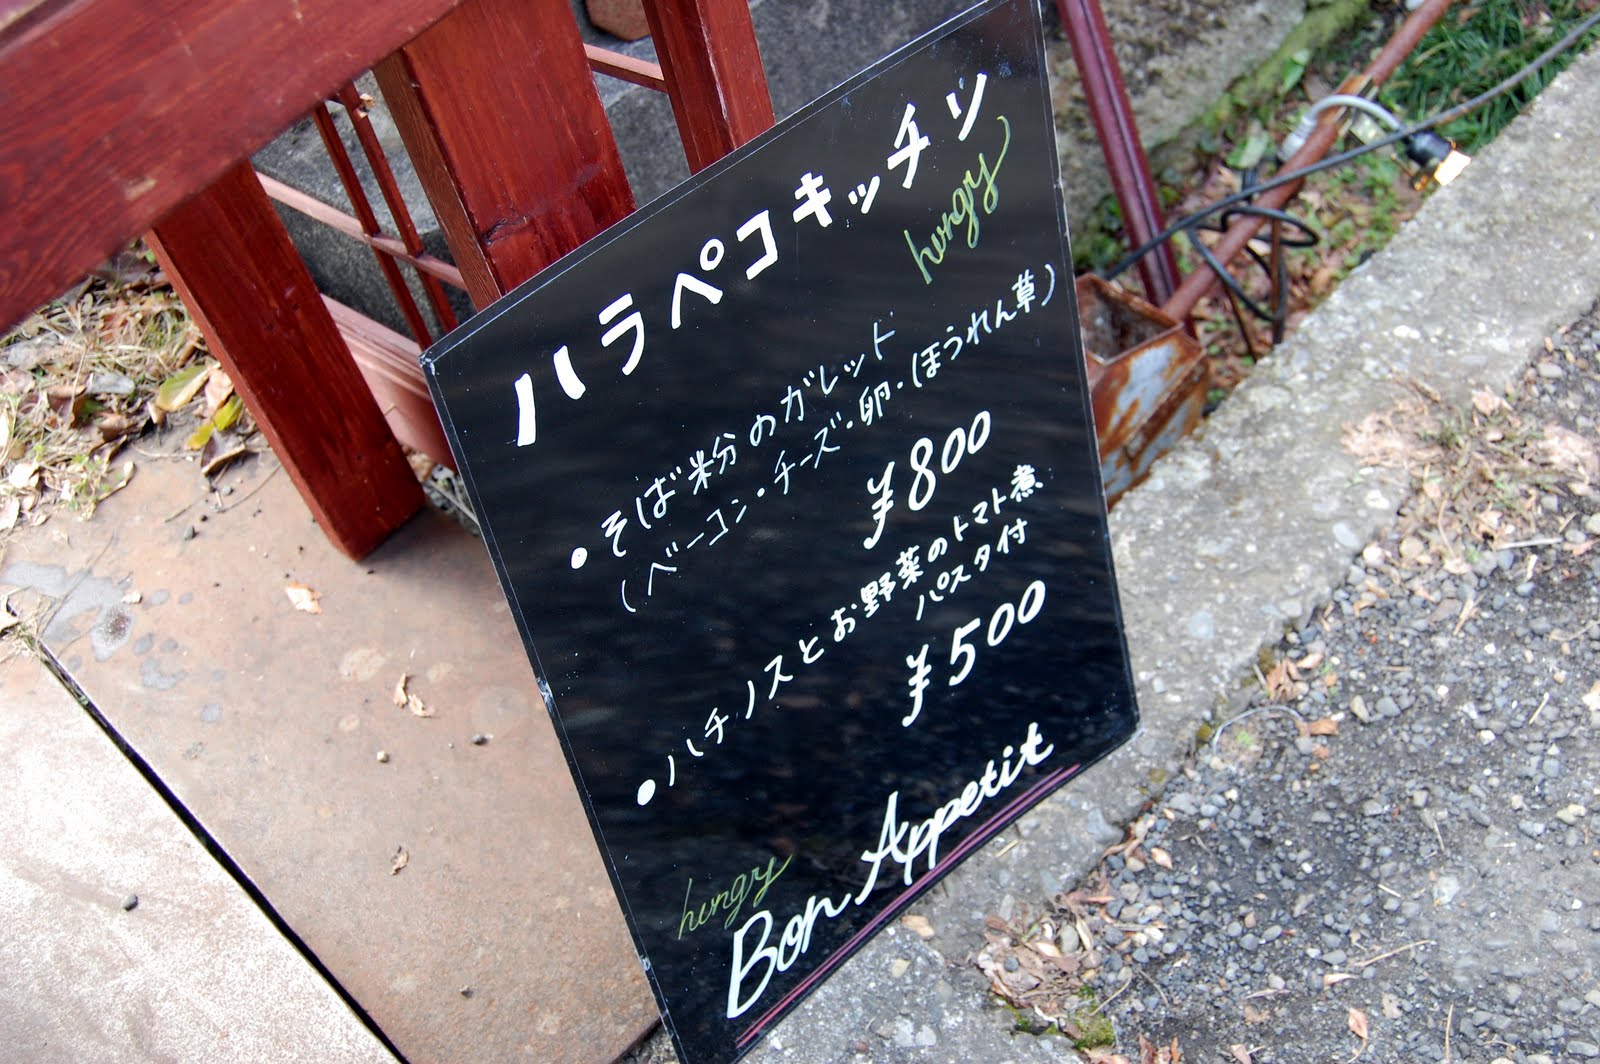 ハラペコキッチン
hungry
・そば粉のガレット
(ベーコン・チーズ・卵・ほうれん草)
¥800
・ハチノスとお野菜のトマト煮
パスタ付
¥500
hungry
Bon Appetit